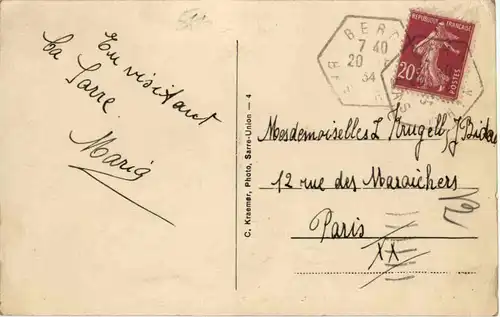 En visitant
la Sarre.
Maria
C. Kraemer, Photo, Sarre-Union - 4
BERT
7 40
20
34
REPUBLIQUE FRANÇAISE
20
POSTES
Mesdemoiselles L Krugell, J
12 rue des Maraichers
Paris
XX